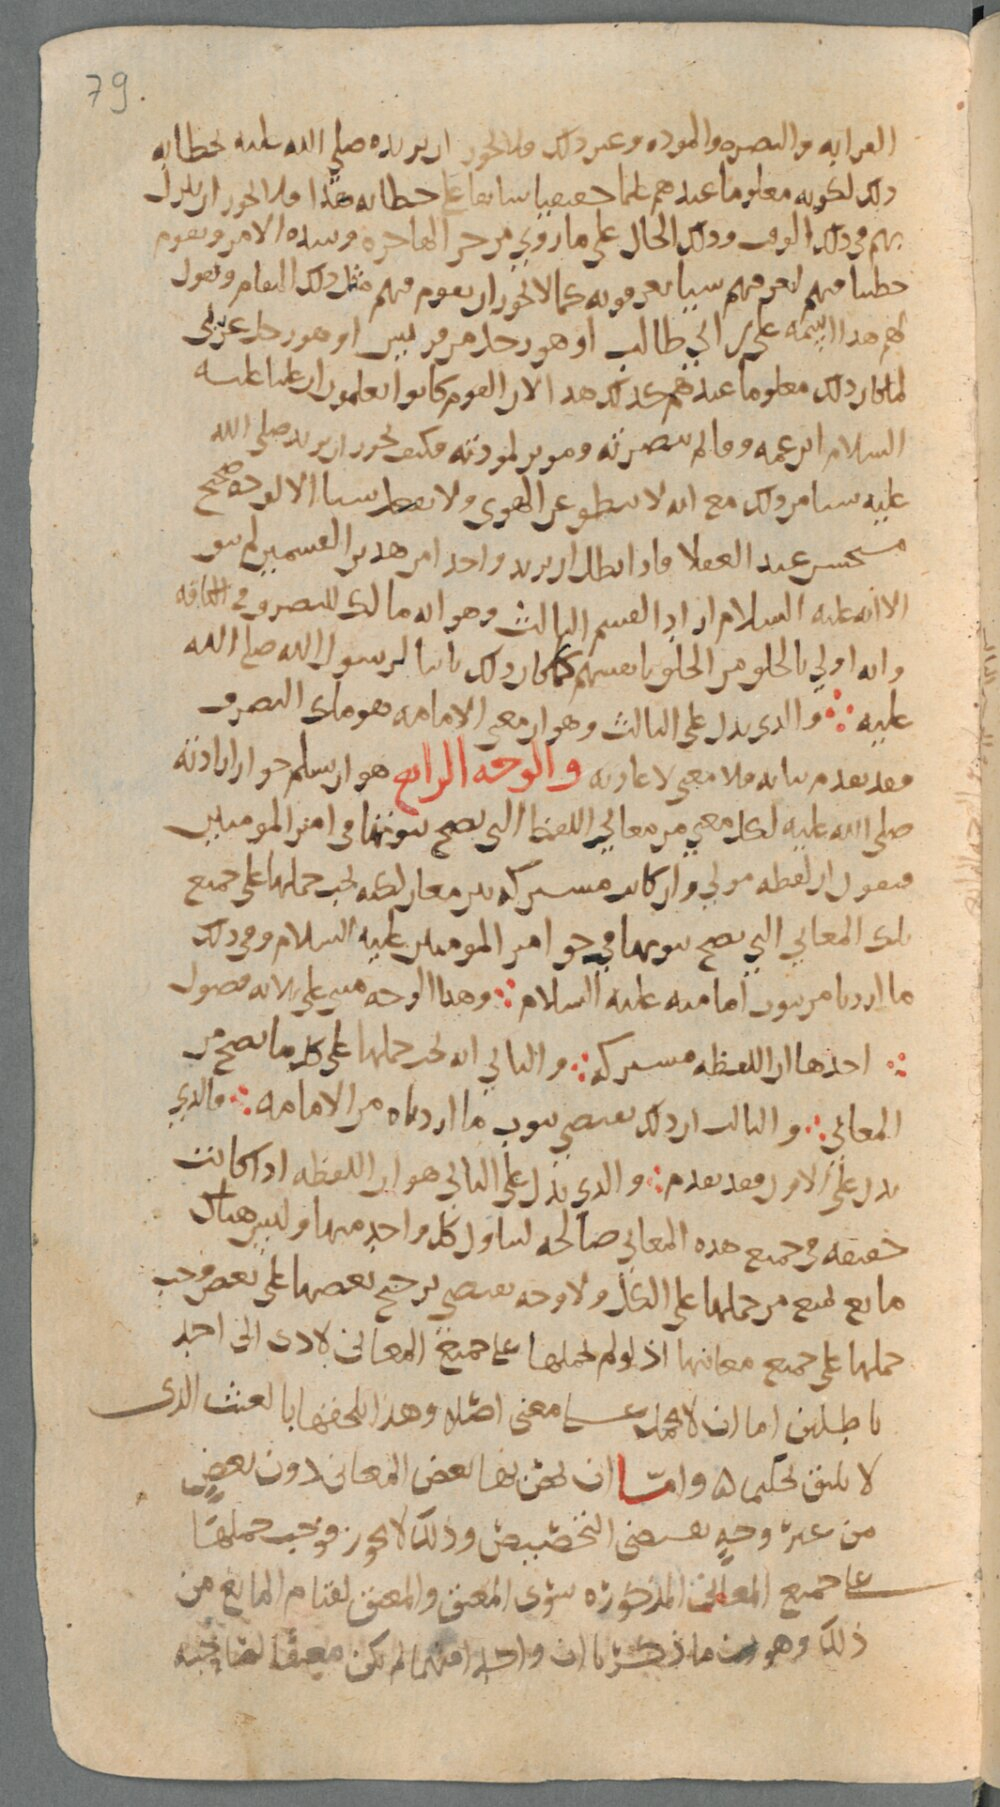 79.
القرابه والنصره والموده وغير ذلك ولا يجوز ان يريده صلى الله عليه بخطابه
ذلك لكونه معلوما عندهم علما حقيقيا سابقا على خطابه هذا ولا يجوز ان ينزل
بهم في ذلك الوقت وذلك الحال على ما روي من حر الهاجره وشده الامر ويقوم
خطيبا فيهم ليعرفهم شيا يعرفونه كما لا يجوز ان يقوم فيهم مثل ذلك المقام ويقول
لهم هذا علي بن ابي طالب او هو رجل من قريش او هو رجل عربي
لما كان ذلك معلوما عندهم كذلك هذا لان القوم كانوا يعلمون ان عليا عليه
السلام ابن عمه وقايم بنصرته وموثر لمودته فكيف يجوز ان يريد صلى الله
عليه شيا من ذلك مع انه لا ينطق عن الهوى ولا يفعل شيا الا لوجه صحيح
مستحسن عند العقلا فاذا بطل ان يريد واحدا من هذين القسمين لم يبق
الا انه عليه السلام اراد القسم الثالث وهو انه مالك للتصرف في الكافه
وانه اولى بالخلق من الخلق بانفسهم كما كان ذلك ثابتا لرسول الله صلى الله
عليه ∴ والذي يدل على الثالث وهو ان معنى الامامه هو ملك التصرف
فقد تقدم بيانه فلا معنى لاعادته والوجه الرابع هو ان يسلم جواز ارادته
صلى الله عليه لكل معنى من معاني اللفظ التي يصح ثبوتها في امير المومنين
فنقول ان لفظه مولى وان كانت مشتركه بين معان لكنه يجب حملها على جميع
تلك المعاني التي يصح ثبوتها في حق امير المومنين عليه السلام وفي ذلك
ما اردنا من ثبوت امامته عليه السلام ∴ وهذا الوجه مبني على ثلاثه فصول
∴ احدها ان اللفظه مشتركه ∴ والثاني انه يجب حملها على كل ما يصح من
المعاني ∴ والثالث ان ذلك يقتضي ثبوت ما اردناه من الامامه ∴ فالذي
يدل على الاول فقد تقدم ∴ والذي يدل على الثاني هو ان اللفظه اذا كانت
حقيقه في جميع هذه المعاني صالحه لتناول كل واحد منها وليس هناك
مانع يمنع من حملها على الكل ولا وجه يقتضي ترجيح بعضها على بعض وجب
حملها على جميع معانيها اذ لو لم نحملها على جميع المعاني لادى الى احد
باطلين اما ان لا تحمل على معنى اصلا وهذا يلحقها بالعبث الذي
لا يليق بحكيم واما ان يخص بها بعض المعاني دون بعض
من غير وجه يقتضي التخصيص وذلك لا يجوز فوجب حملها
على جميع المعاني المذكوره سوى المعتق والمعتق لقيام المانع من
ذلك وهو ما ذكرنا ان واحدا منهما لم يكن معتقا لصاحبه